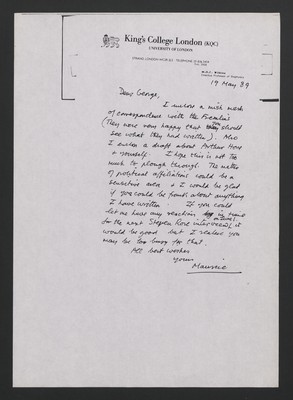 King's College London (KQC)
UNIVERSITY OF LONDON
STRAND, LONDON WC2R 2LS
19 May 89
Dear George,
I enclose a much
of correspondence with the
(They were very happy that you should
see what they had written). Also
I enclose a draft about Arthur
+ yourself. I hope this is not too
much to plough through. The matter
of political affiliations could be a
sensitive area + I would be glad
if you could be frank about anything
I have written. If you could
let me have any reaction in time
for the next Stephen Rose interviews, it
would be good but I realise you
may be too busy for that.
All best wishes
Yours
Maurice